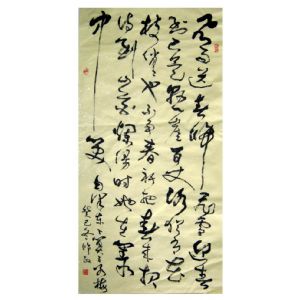 风雨送春归飞雪迎春
到已是悬崖百丈冰犹有花
枝俏俏也不争春只把春来报
待到山花烂漫时她在丛
中笑
毛泽东卜算子咏梅
癸巳冬